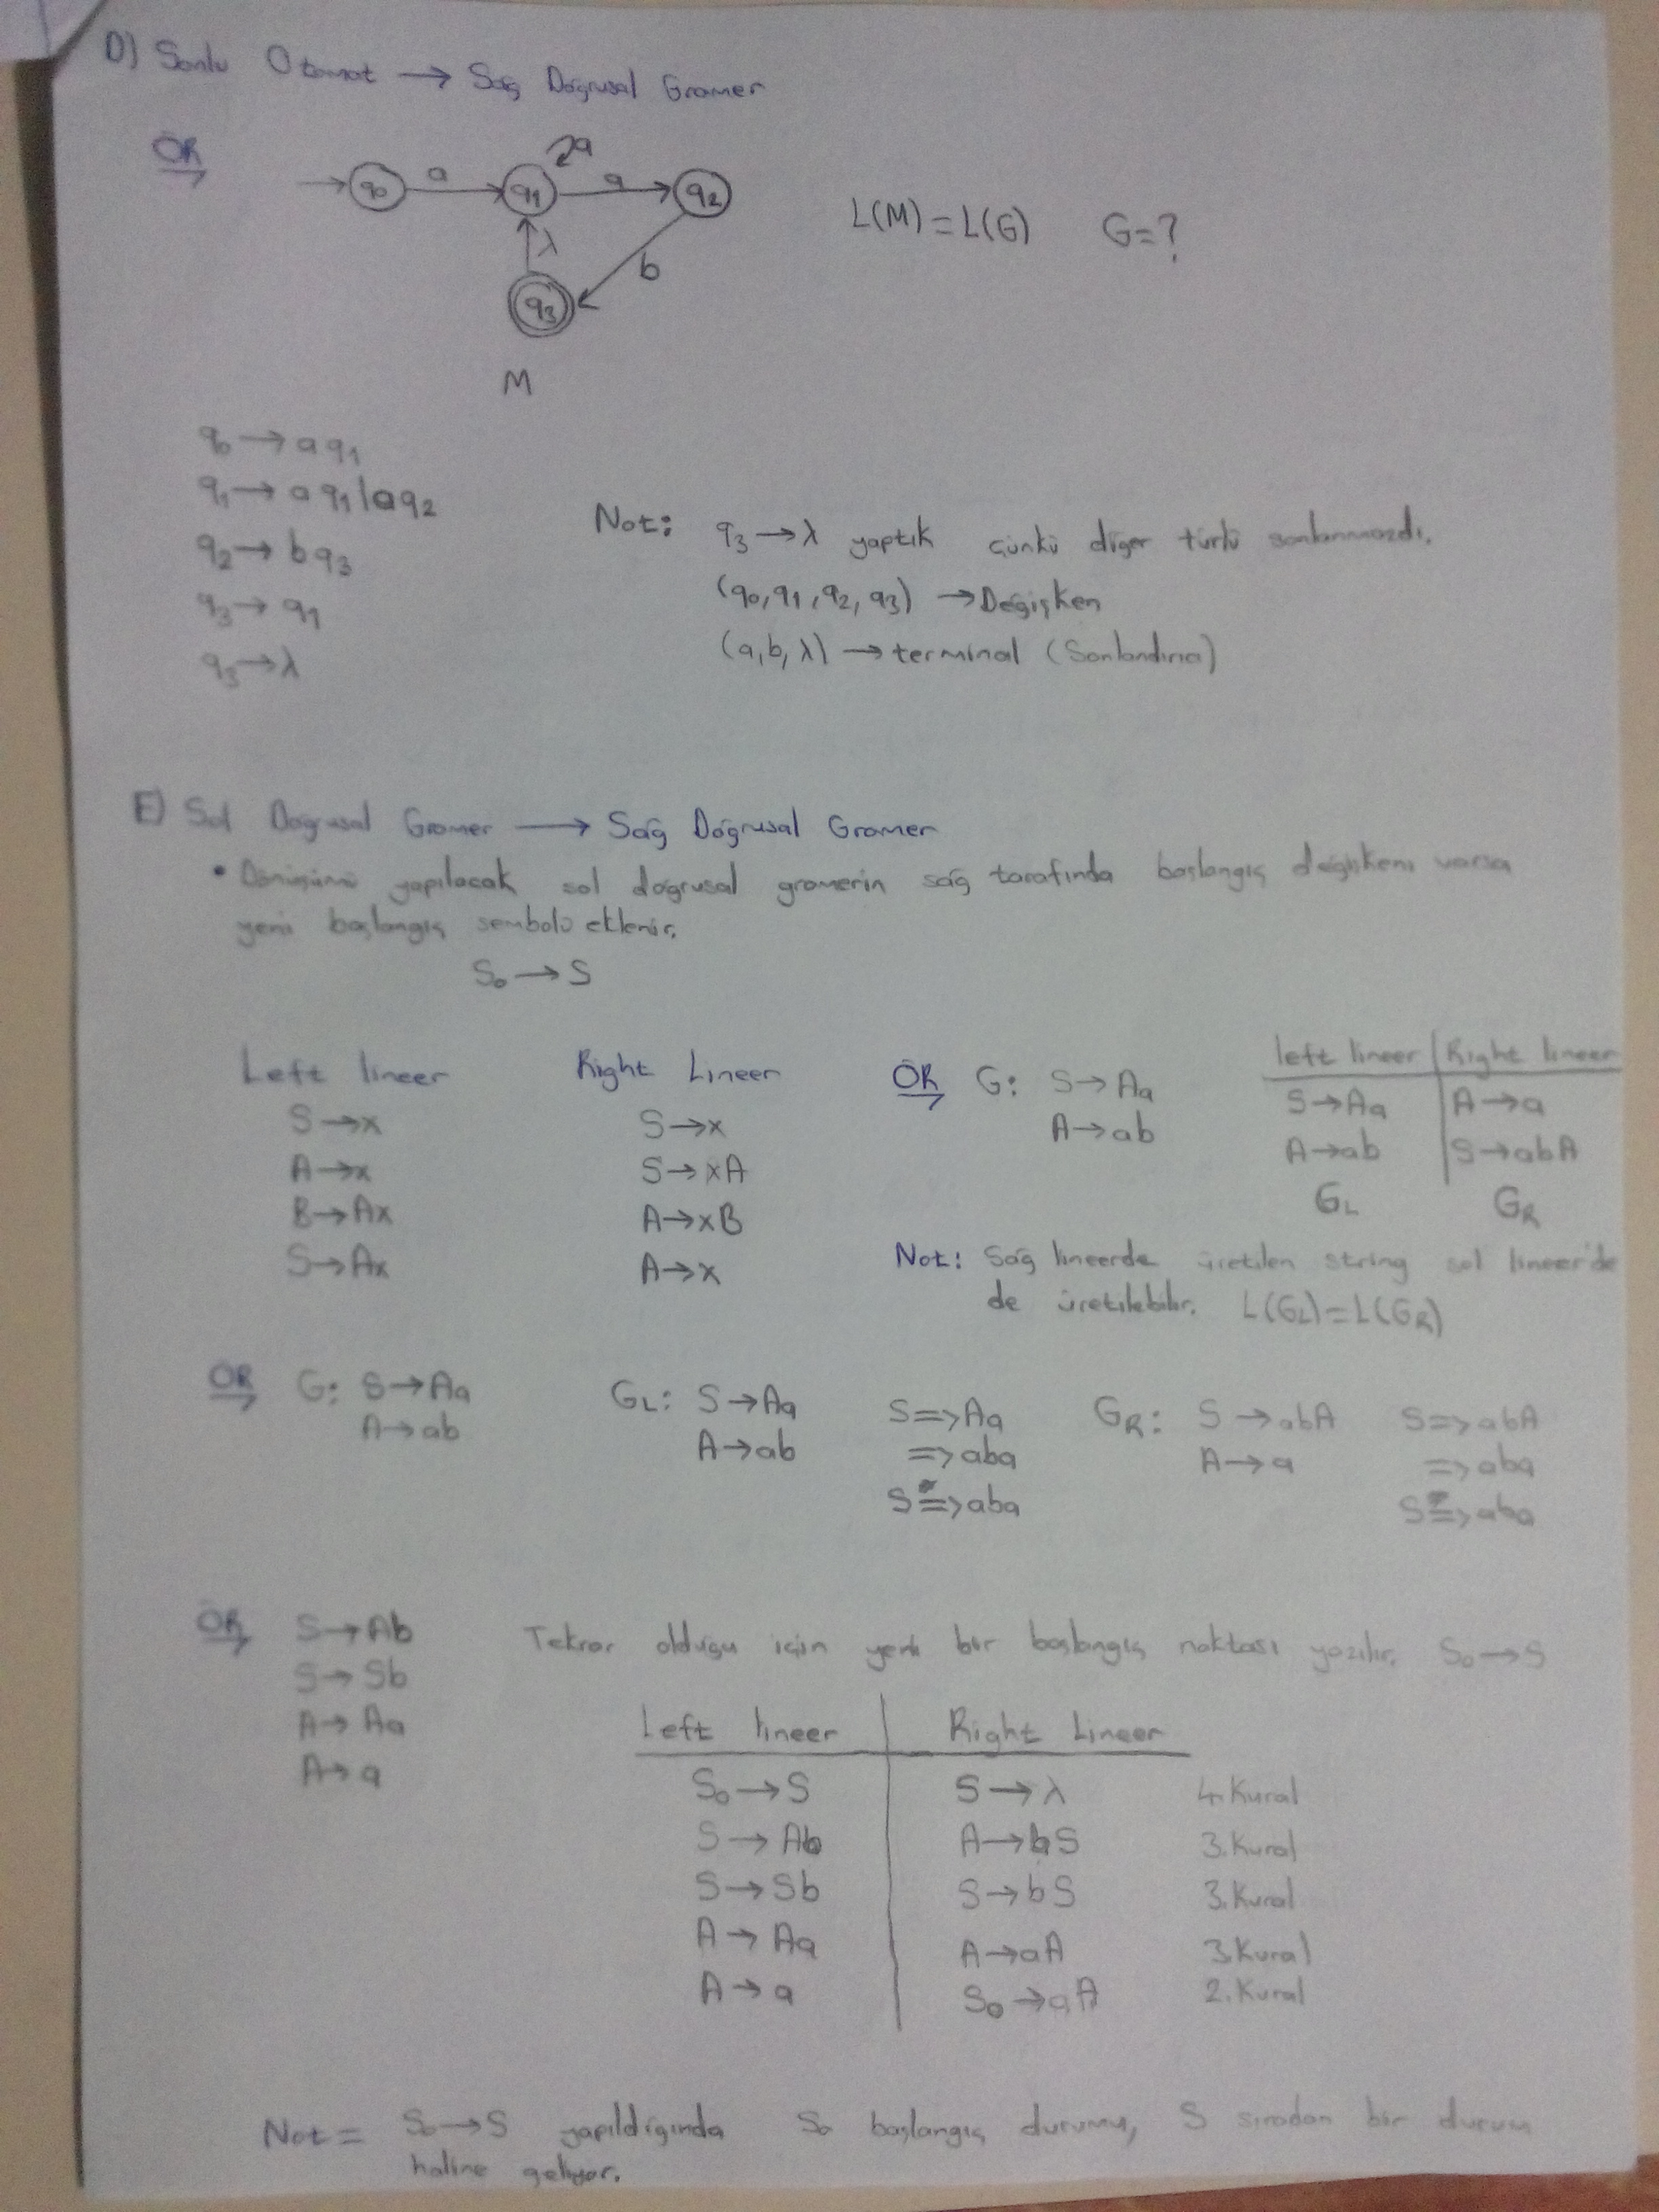 D) Sonlu Otomat → Sağ Doğrusal Gramer
ÖR
q0 a q1 a a q2
λ b
q3
M
L(M)=L(G) G=?
q0 → a q1
q1 → a q1 | a q2
q2 → b q3
q3 → q1
q3 → λ
Not: q3 → λ yaptık çünkü diğer türlü sonlanmazdı.
(q0, q1, q2, q3) → Değişken
(a, b, λ) → terminal (Sonlandırıcı)
E) Sol Doğrusal Gramer → Sağ Doğrusal Gramer
• Dönüşümü yapılacak sol doğrusal gramerin sağ tarafında başlangıç değişkeni varsa
yeni başlangıç sembolü eklenir.
S0 → S
Left lineer Right Lineer
S → x S → x
A → x S → xA
B → Ax A → xB
S → Ax A → x
ÖR G: S → Aa
A → ab
left lineer | Right lineer
S → Aa | A → a
A → ab | S → abA
GL GR
Not: Sağ lineerde üretilen string sol lineer'de
de üretilebilir. L(GL)=L(GR)
ÖR G: S → Aa
A → ab
GL: S → Aa
A → ab
S => Aa
=> aba
S *=> aba
GR: S → abA
A → a
S => abA
=> aba
S *=> aba
ÖR S → Ab
S → Sb
A → Aa
A → a
Tekrar olduğu için yeni bir başlangıç noktası yazılır. S0 → S
Left lineer | Right Lineer
S0 → S | S → λ 4. Kural
S → Ab | A → bS 3. Kural
S → Sb | S → bS 3. Kural
A → Aa | A → aA 3. Kural
A → a | S0 → aA 2. Kural
Not = S0 → S yapıldığında S0 başlangıç durumu, S sıradan bir durum
haline geliyor.